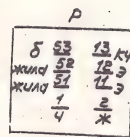 Р
б 53 13 кч
жила 52 12 Э
жила 51 11 Э
1 2
4 Ж